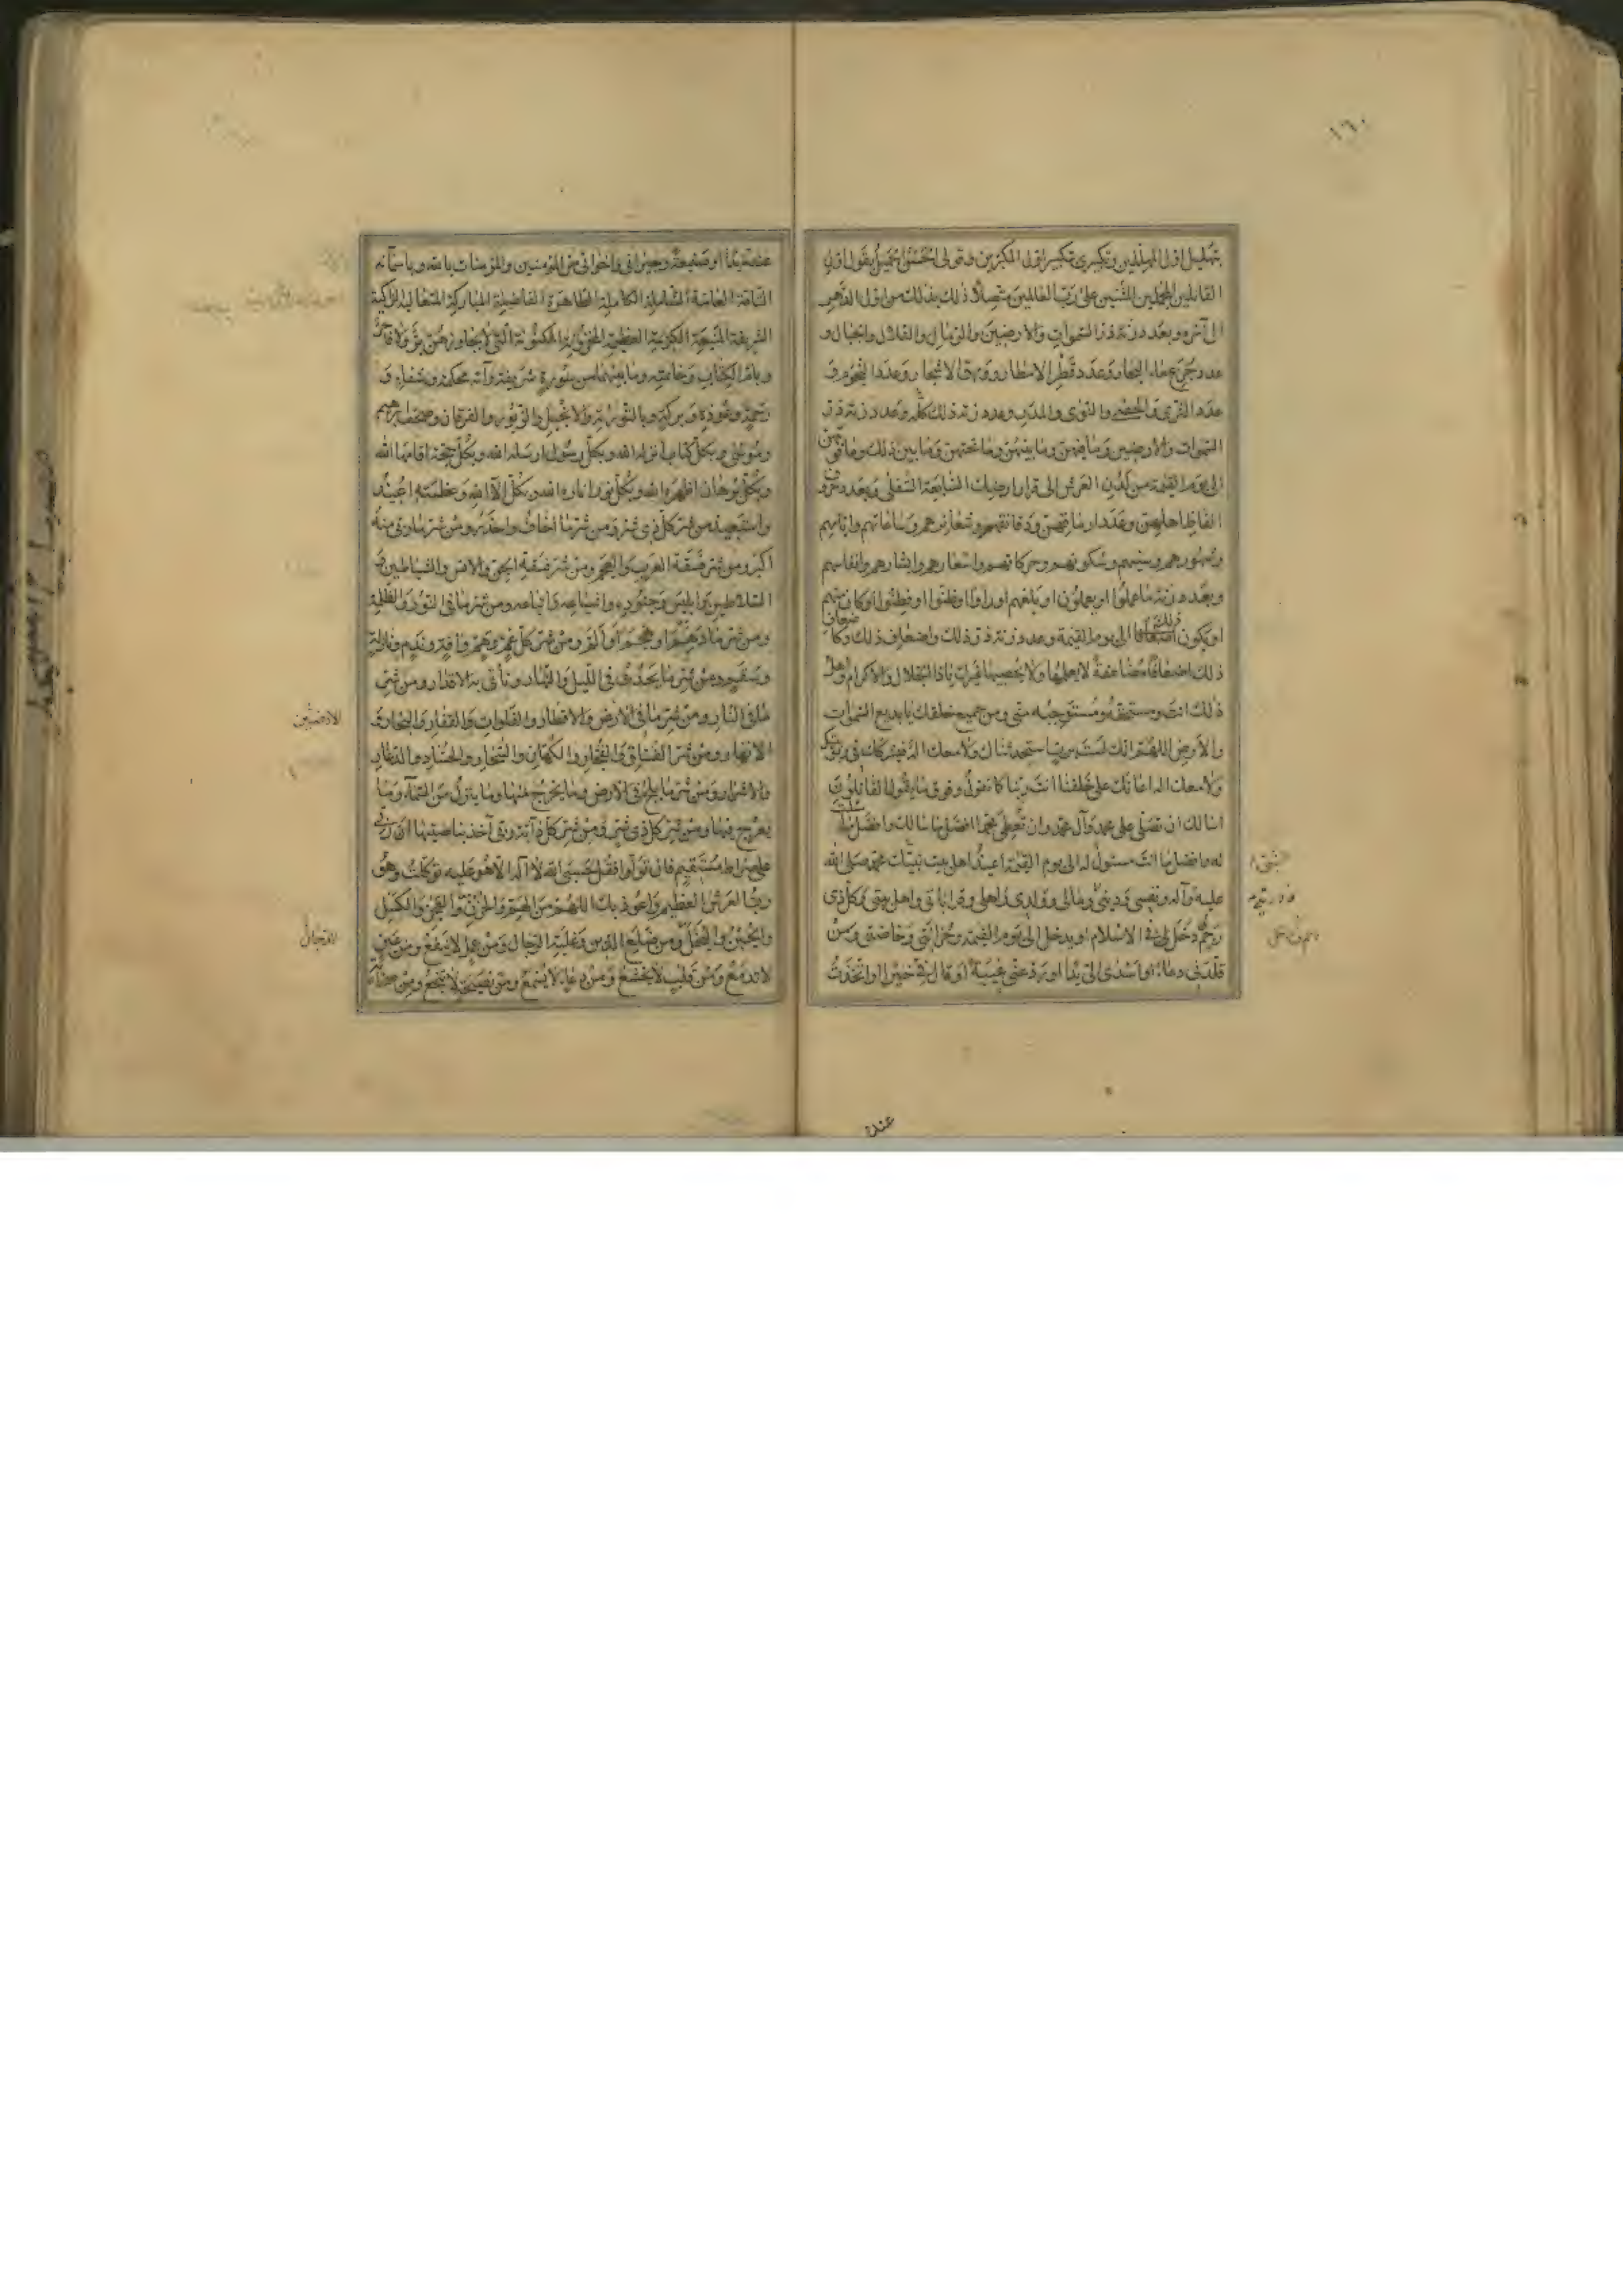 ١٦٠
بتهليل اول المهللين وتكبيرى تكبير اول المكبرين وقولى الحسن الجميل بقول اول
القائلين المجملين المثنين على رب العالمين متصلا ذلك بذلك من اول الدهر
الى آخره وبعدد زنة ذر السموات والارضين والرمال والتلال والجبال و
عدد جرع ماء البحار وعدد قطر الامطار وورق الاشجار وعدد النجوم و
عدد الثرى والحصى والنوى والمدر وعدد زنة ذلك كله وعدد زنة ذر
السموات والارضين وما فيهن وما بينهن وما تحتهن وما بين ذلك وما فوقهن
الى يوم القيمة من لدن العرش الى قرار ارضك السابعة السفلى وبعدد حروف
الفاظ اهلهن وعدد ارماقهم ودقائقهم وشعائرهم وساعاتهم وايامهم
وشهورهم وسنيهم وسكونهم وحركاتهم واشعارهم وابشارهم وانفاسهم
وبعدد زنة ما عملوا او يعملون او بلغهم او راوا او ظنوا او فطنوا او كان منهم
او يكون ذلك الى يوم القيمة وعدد زنة ذر ذلك واضعاف ذلك وكاضعاف
ذلك اضعافا مضاعفة لا يعلمها ولا يحصيها غيرك يا ذا الجلال والاكرام واهل
ذلك انت ومستحقه ومستوجبه منى ومن جميع خلقك يا بديع السموات
والارض اللهم انك لست برب استحدثناك ولا معك اله فيشركك فى ربوبيتك
ولا معك اله اعانك على خلقنا انت ربنا كما نقول وفوق ما يقول القائلون
اسالك ان تصلى على محمد وآل محمد وان تعطى محمدا افضل ما سالك وافضل ما سئلت
له وافضل ما انت مسئول له الى يوم القيمة اعيذ اهل بيت نبيك محمد صلى الله
عليه وآله ونفسى ودينى ومالى وولدى واهلى وقراباتى واهل بيتى وكل ذى
رحم دخل لى فى الاسلام او يدخل الى يوم القيمة وحزانتى وخاصتى ومن
قلدنى دعاء او اسدى الى يدا او رد عنى غيبة او قال فى خيرا او اتخذت
عنده
عنده يدا او صنيعة وجيرانى واخوانى من المؤمنين والمؤمنات بالله وباسمائه
التامة العامة الشاملة الكاملة الطاهرة الفاضلة المباركة المتعالية الزاكية
الشريفة المنيعة الكريمة العظيمة المخزونة المكنونة التى لا يجاوزهن بر ولا فاجر
وبام الكتاب وخاتمته وما بينهما من سورة شريفة وآية محكمة وشفاء و
رحمة وعوذة وبركة وبالتورية والانجيل والزبور والفرقان وصحف ابرهيم
وموسى وبكل كتاب انزله الله وبكل رسول ارسله الله وبكل حجة اقامها الله
وبكل برهان اظهره الله وبكل نور اناره الله وبكل آلاء الله وعظمته اعيذ
واستعيذ من شر كل ذى شر ومن شر ما اخاف واحذر ومن شر ما ربى منه
اكبر ومن شر فسقة العرب والعجم ومن شر فسقة الجن والانس والشياطين و
السلاطين وابليس وجنوده واشياعه واتباعه ومن شر ما فى النور والظلمة
ومن شر ما دهم او هجم او الم ومن شر كل غم وهم وآفة وندم ونازلة
وسقم ومن شر ما يحدث فى الليل والنهار وتاتى به الاقدار ومن شر
ما فى النار ومن شر ما فى الارض والاقطار والفلوات والقفار والبحار و
الارضين
الانهار ومن شر الفساق والفجار والكهان والسحار والحساد والذعار
والاشرار ومن شر ما يلج فى الارض وما يخرج منها وما ينزل من السماء وما
يعرج فيها ومن شر كل ذى شر ومن شر كل دابة ربى آخذ بناصيتها ان ربى
على صراط مستقيم فان تولوا فقل حسبى الله لا اله الا هو عليه توكلت وهو
رب العرش العظيم واعوذ بك اللهم من الهم والحزن والعجز والكسل
والجبن والبخل ومن ضلع الدين وغلبة الرجال ومن عمل لا ينفع ومن عين
لا تدمع ومن قلب لا يخشع ومن دعاء لا يسمع ومن نصيحة لا تنجع ومن صحابة